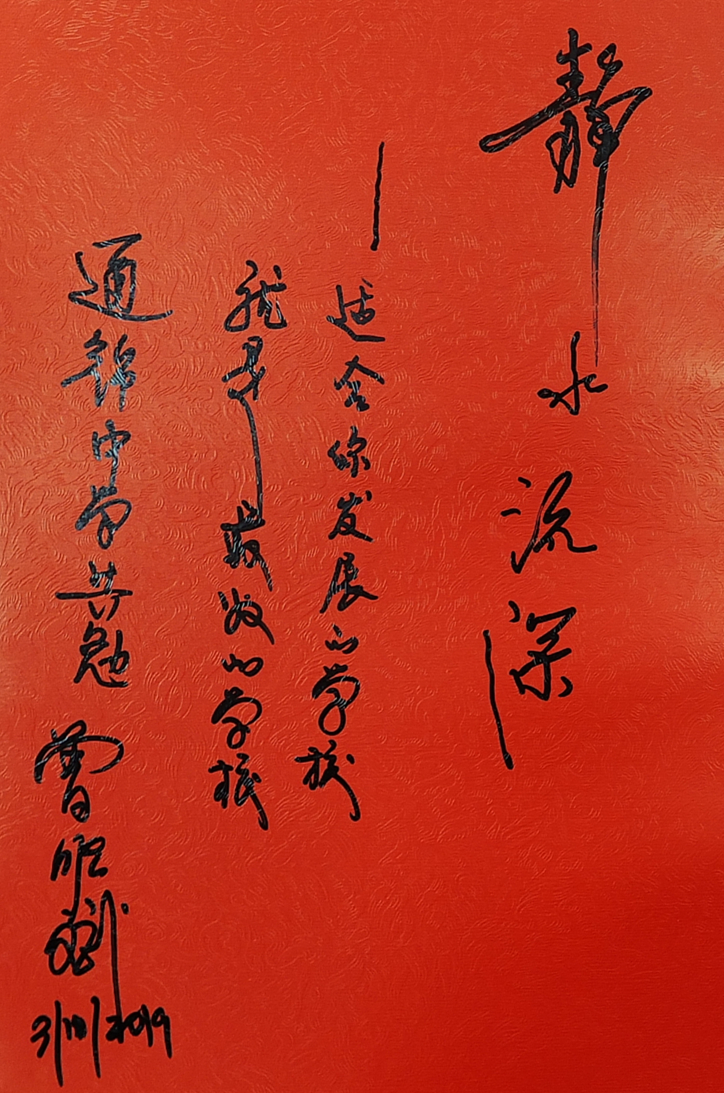 静水流深
—适合你发展的学校
就是最好的学校
通锦中学共勉
曾
3/10/2019